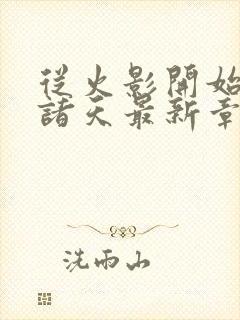 從火影開始
諸天最新章
洗雨山